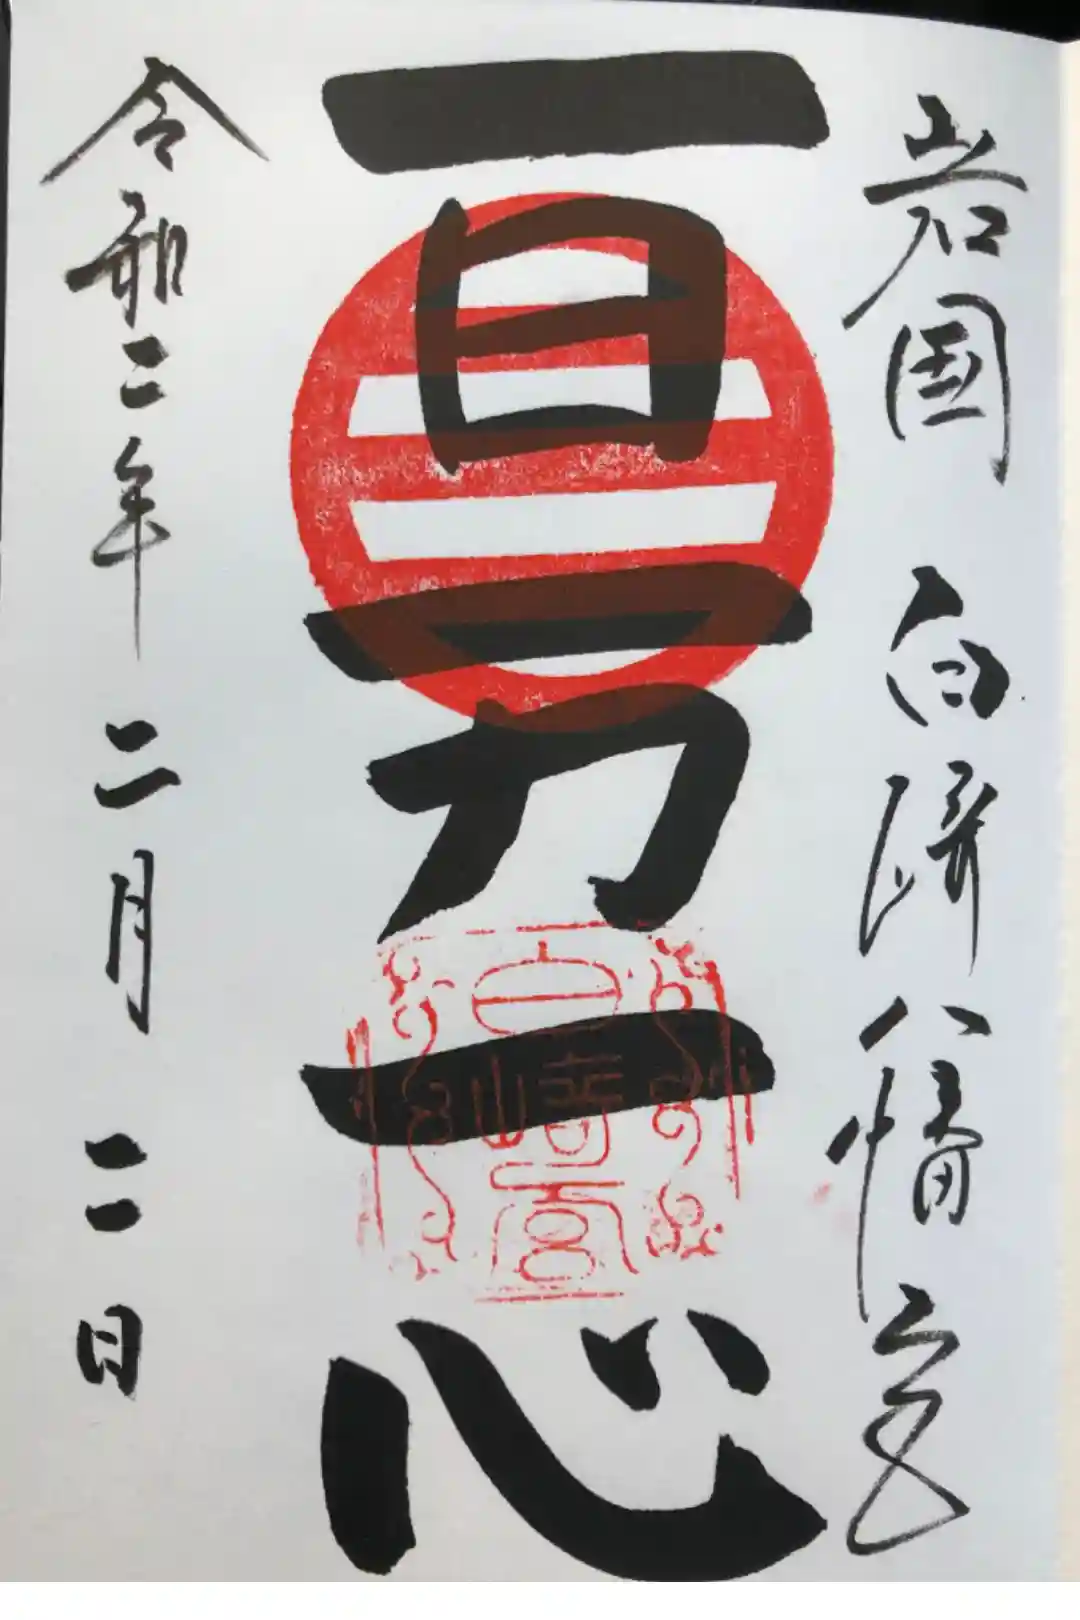 岩国 白崎八幡宮
一日一力一心
令和二年 二月 二日
白崎宮